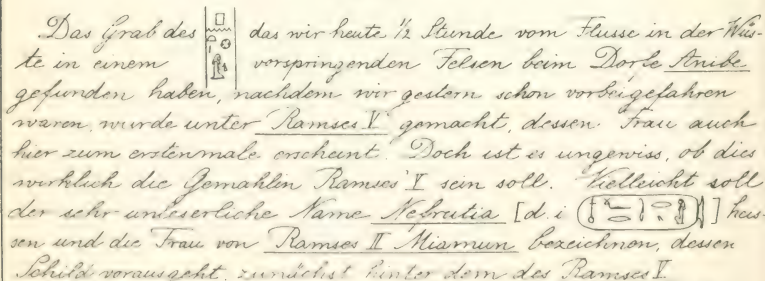 Das Grab des das wir heute ½ Stunde vom Flusse in der Wüs-
te in einem vorspringenden Felsen beim Dorfe Anibe
gefunden haben, nachdem wir gestern schon vorbeigefahren
waren, wurde unter Ramses V gemacht, dessen Frau auch
hier zum erstenmale erscheint. Doch ist es ungewiss, ob dies
wirklich die Gemahlin Ramses' V sein soll. Vielleicht soll
der sehr unleserliche Name Nefrutia [d. i ] heis-
sen und die Frau von Ramses II Miamun bezeichnen, dessen
Schild vorausgeht, zunächst hinter dem des Ramses V.